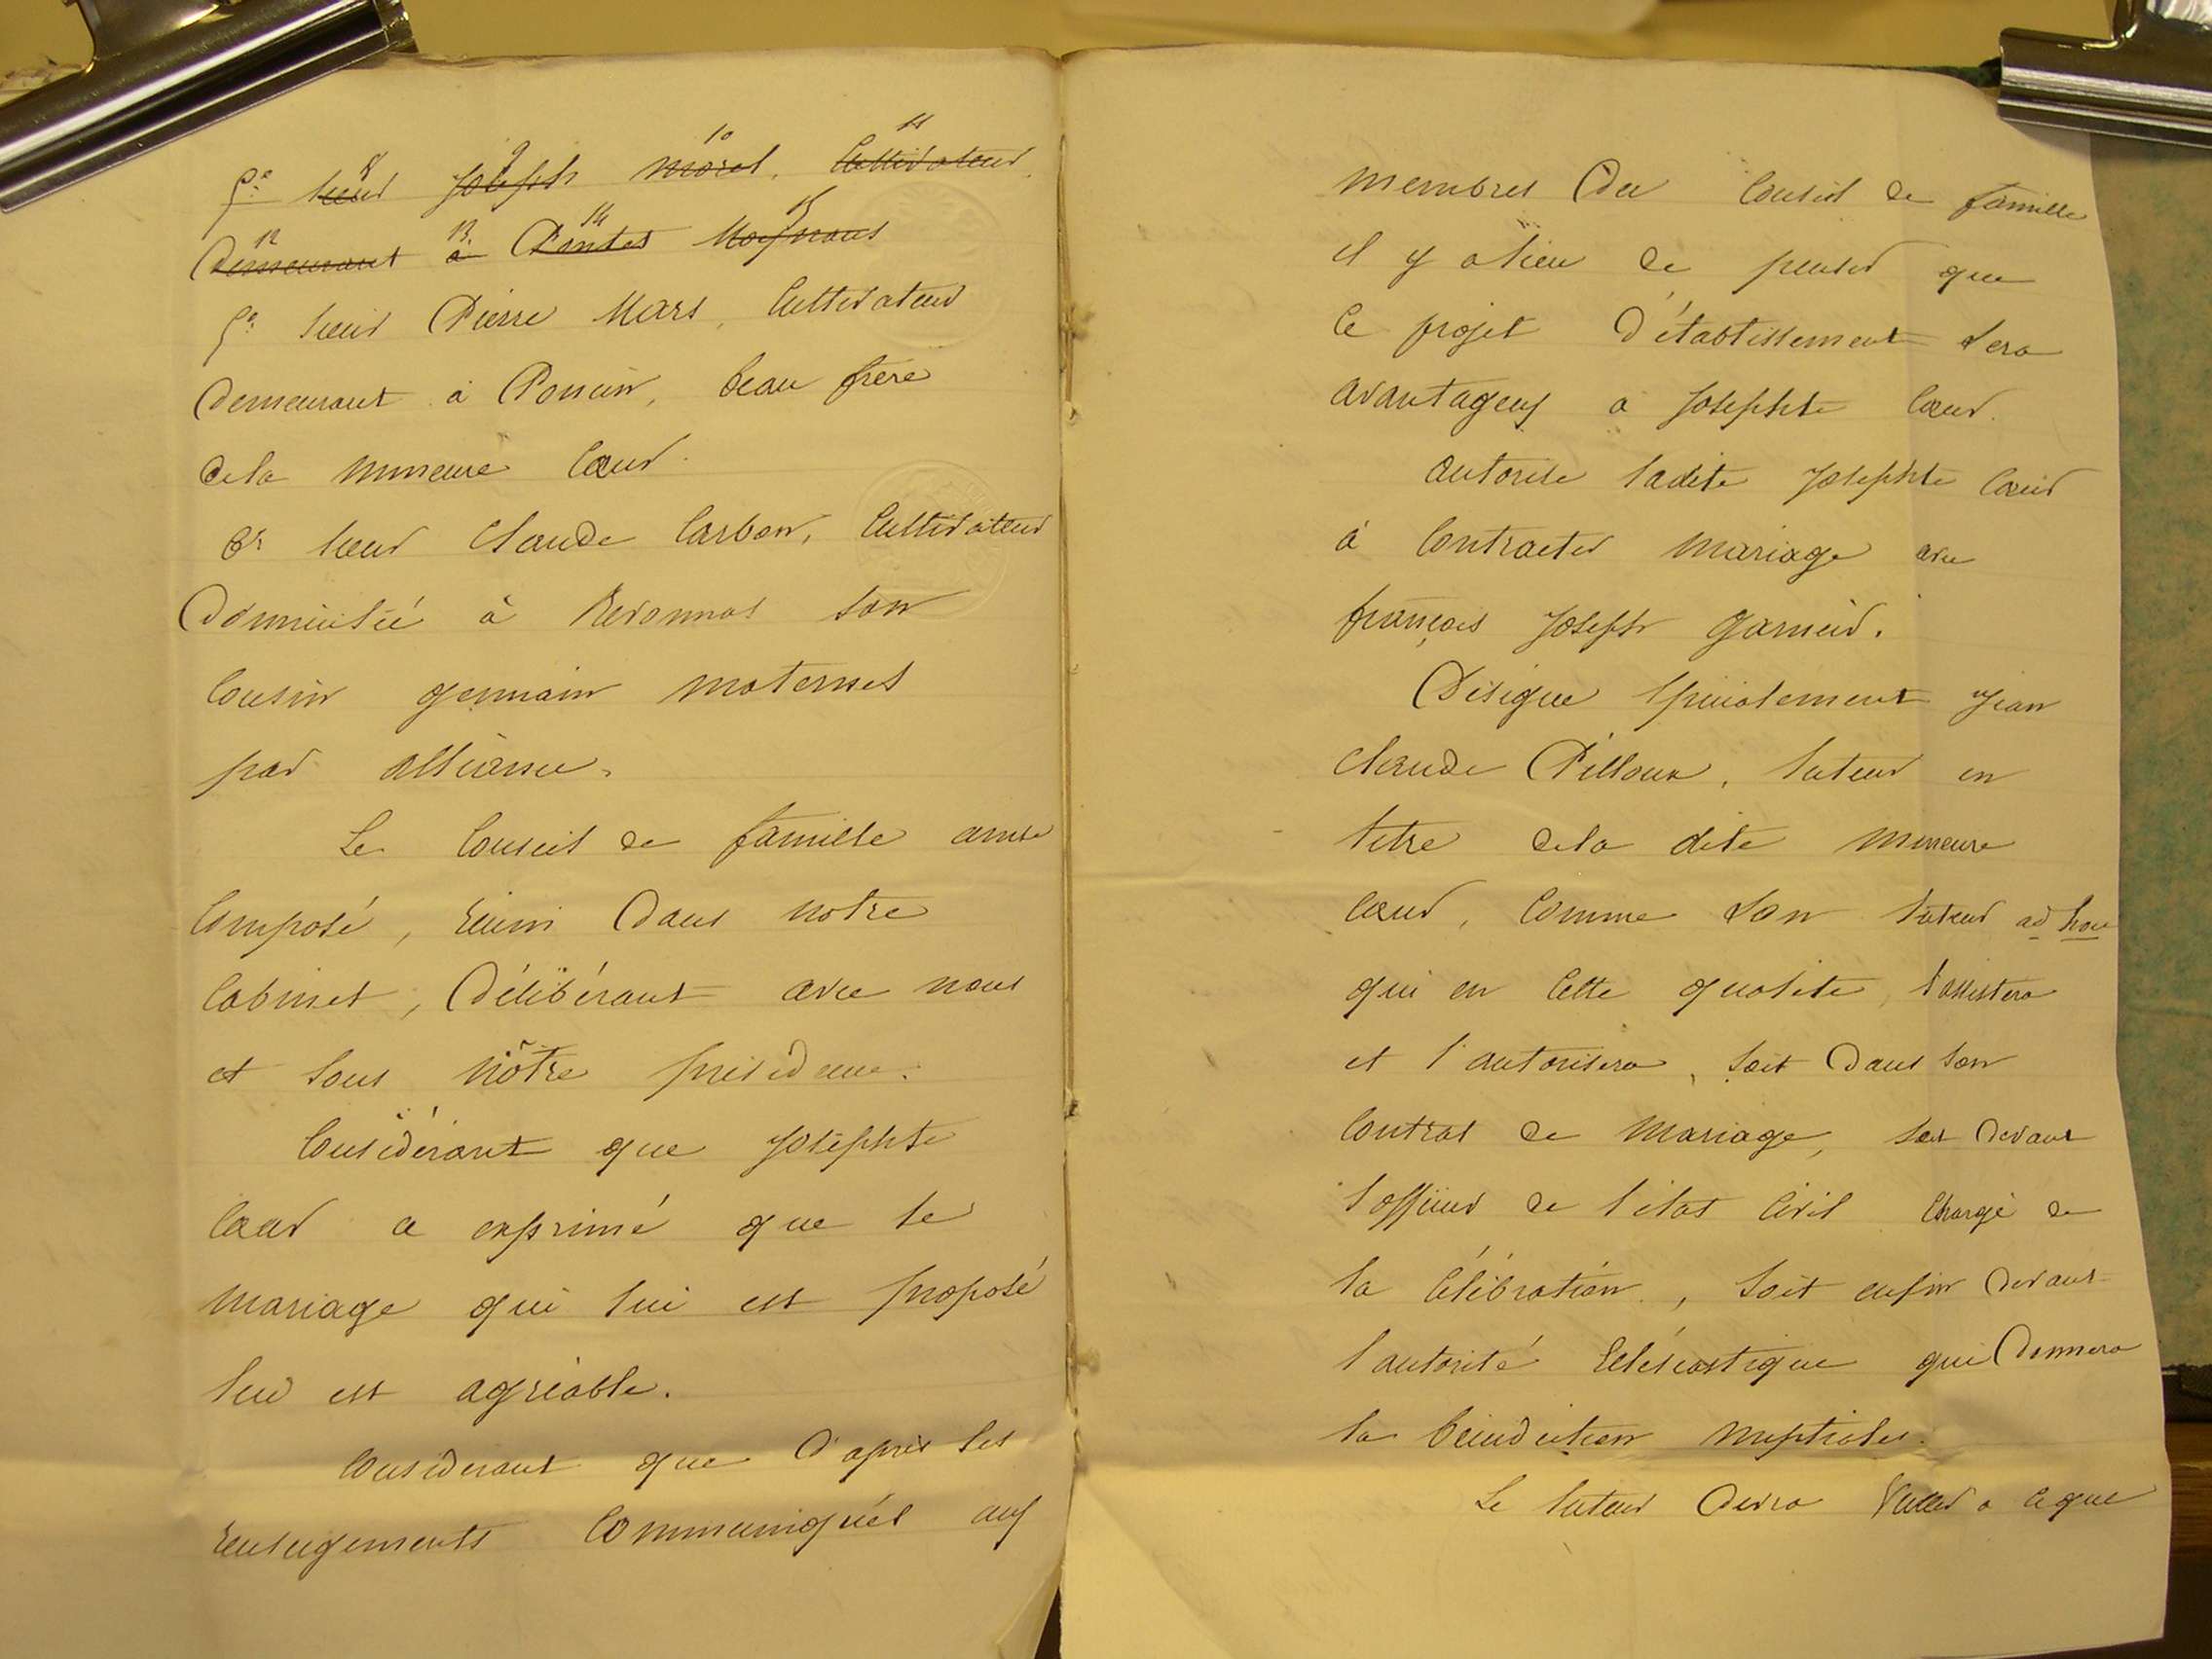 5° sieur Joseph Morel, Cultivateur
8 9 10 11
demeurant à Pontes
12 13 14 15
5° sieur Pierre Mars, Cultivateur
demeurant à Poncin, beau frère
dela mineure Cœur.
6° sieur Claude Carbon, Cultivateur
Domicilié à Revonnas son
Cousin germain maternel
par alliance.
Le Conseil de famille ainsi
Composé, réuni Dans notre
Cabinet, Délibérant avec nous
et sous nôtre présidence.
Considérant que Josephte
Cœur a exprimé que le
mariage qui lui est proposé
lui est agréable.
Considerant que D'après les
renseigements Communiqués aux
membres Du Conseil de famille
il y a lieu de penser que
ce projet D'établissement sera
avantageux a Josephte Cœur.
autorise ladite Josephte Cœur
à Contracter mariage avec
françois Joseph Garnier.
Désigne spécialement Jean
Claude Pilloux, tuteur en
titre dela dite mineure
Cœur, Comme son tuteur ad hoc
qui en Cette qualite, l'assistera
et l'autorisera, soit Dans son
Contrat de mariage, soit devant
l'officier de l'état Civil Chargé de
la Célébration, soit enfin devant
l'autorité Eclésiastique qui Donnera
la béindiction nuptiales.
Le tuteur devra veiller a ce que